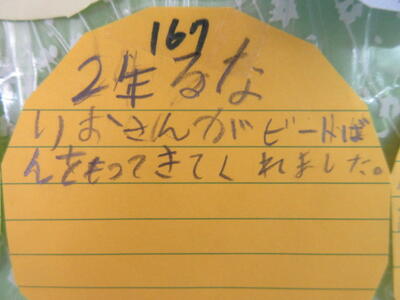 167
2年るな
りおさんがビートば
んをもってきてくれました。